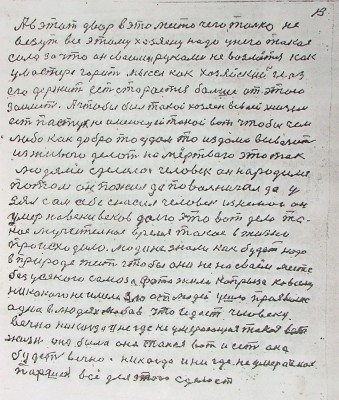 13
А в этот двор в это место чего только не
везут все этому хозяину надо у него такая
сила за что он своими руками не возмется как
у мастера горит мысля как хозяйский глаз
его держит ест старается больше от этого
А чтобы был такой хозяин в своей жизни
ест пастух не имеющей такой вот чтобы чем
либо как добро то удом то кадома вывалит
из живого делот на мертваго это так
людями сделался человек он народиме
потом он пожил да поволничал да у
взял сам себе скосил человек изжил он
умер на веки веков долго это вот дело та-
кое мучетелное время такое в жизни
происходило. люди не знали как будет надо
в природе жит чтобы они не на своем месте
без усякого самоза жили капрыза к овсему
никакого не имели зло от людей ушло
одна в людях любов что едает человеку.
вечно никогда и негде не умрающая такая вот
жизн она была она такая вот и ест она
будет вечно. никогда и ни где не умерающая
всё для этого сделает